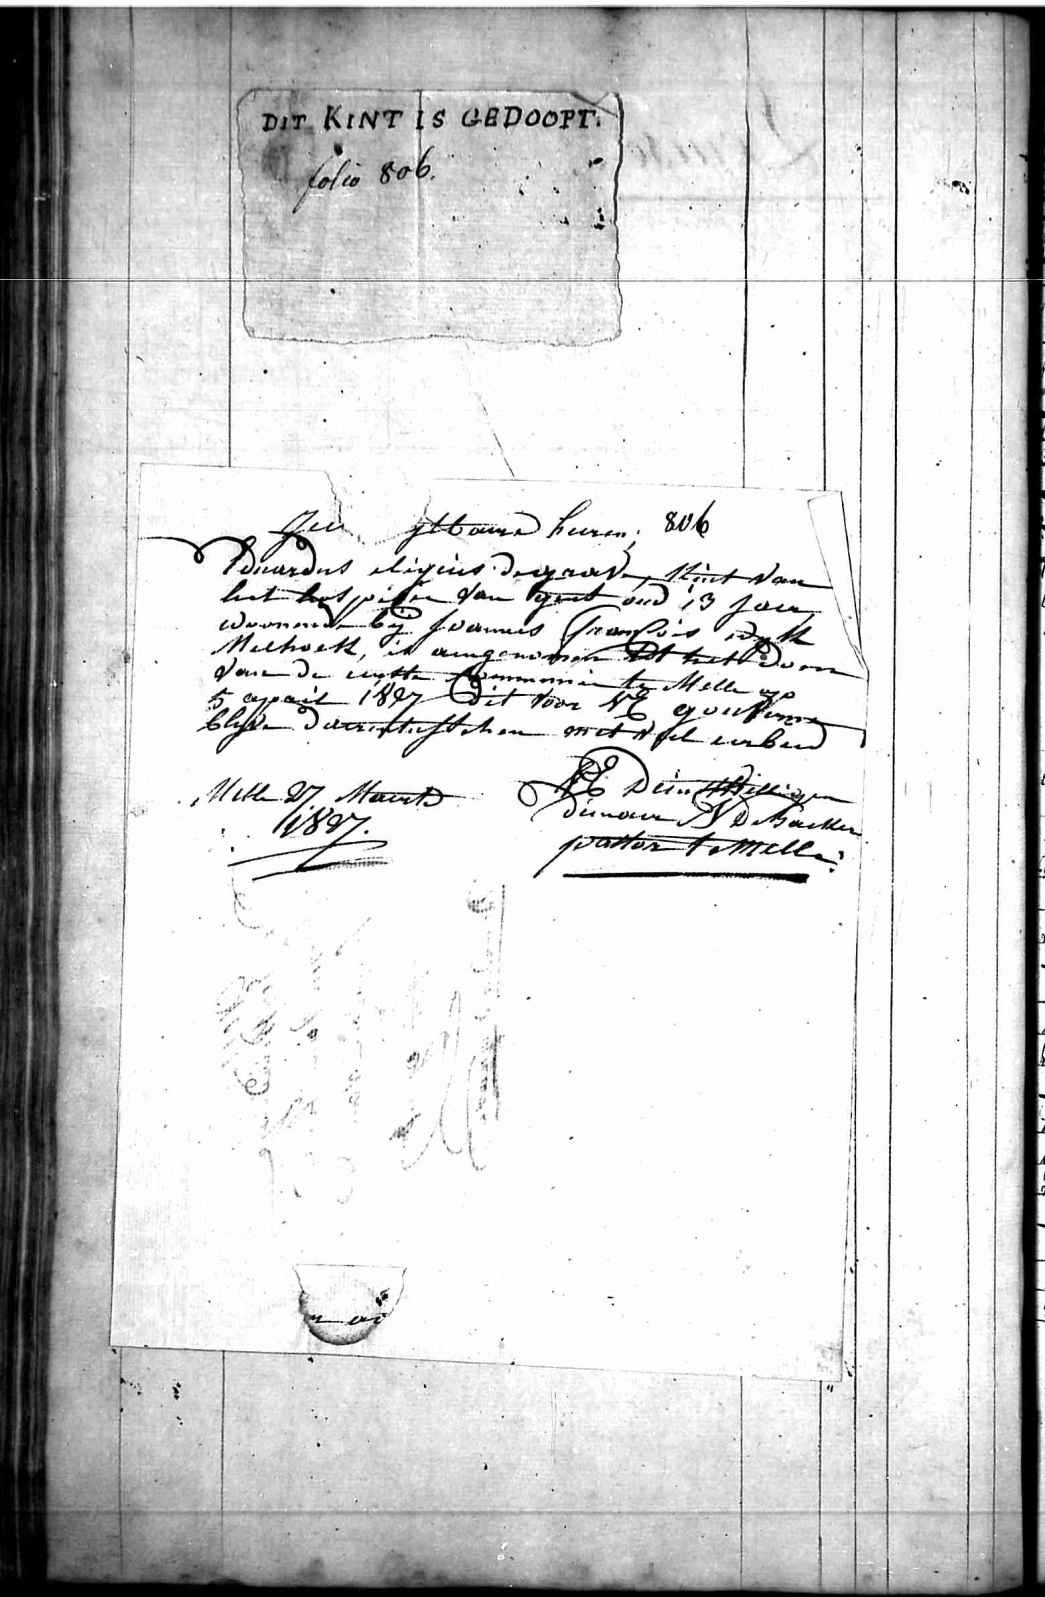 DIT KINT IS GEDOOPT.
folio 806.
heeren; 806
Eduardus eligius degraeve, kint van
het hospitie van gent oud 13 jaer,
woonende bij Joannes François
Melhoek, is aengenomen tot het doen
van de eerste Communie te Melle op
5 april 1827 dit voor
blyve met veel eerbied
Melle 27 Maerte
1827.
dienaer De Backer
pastor te Melle.